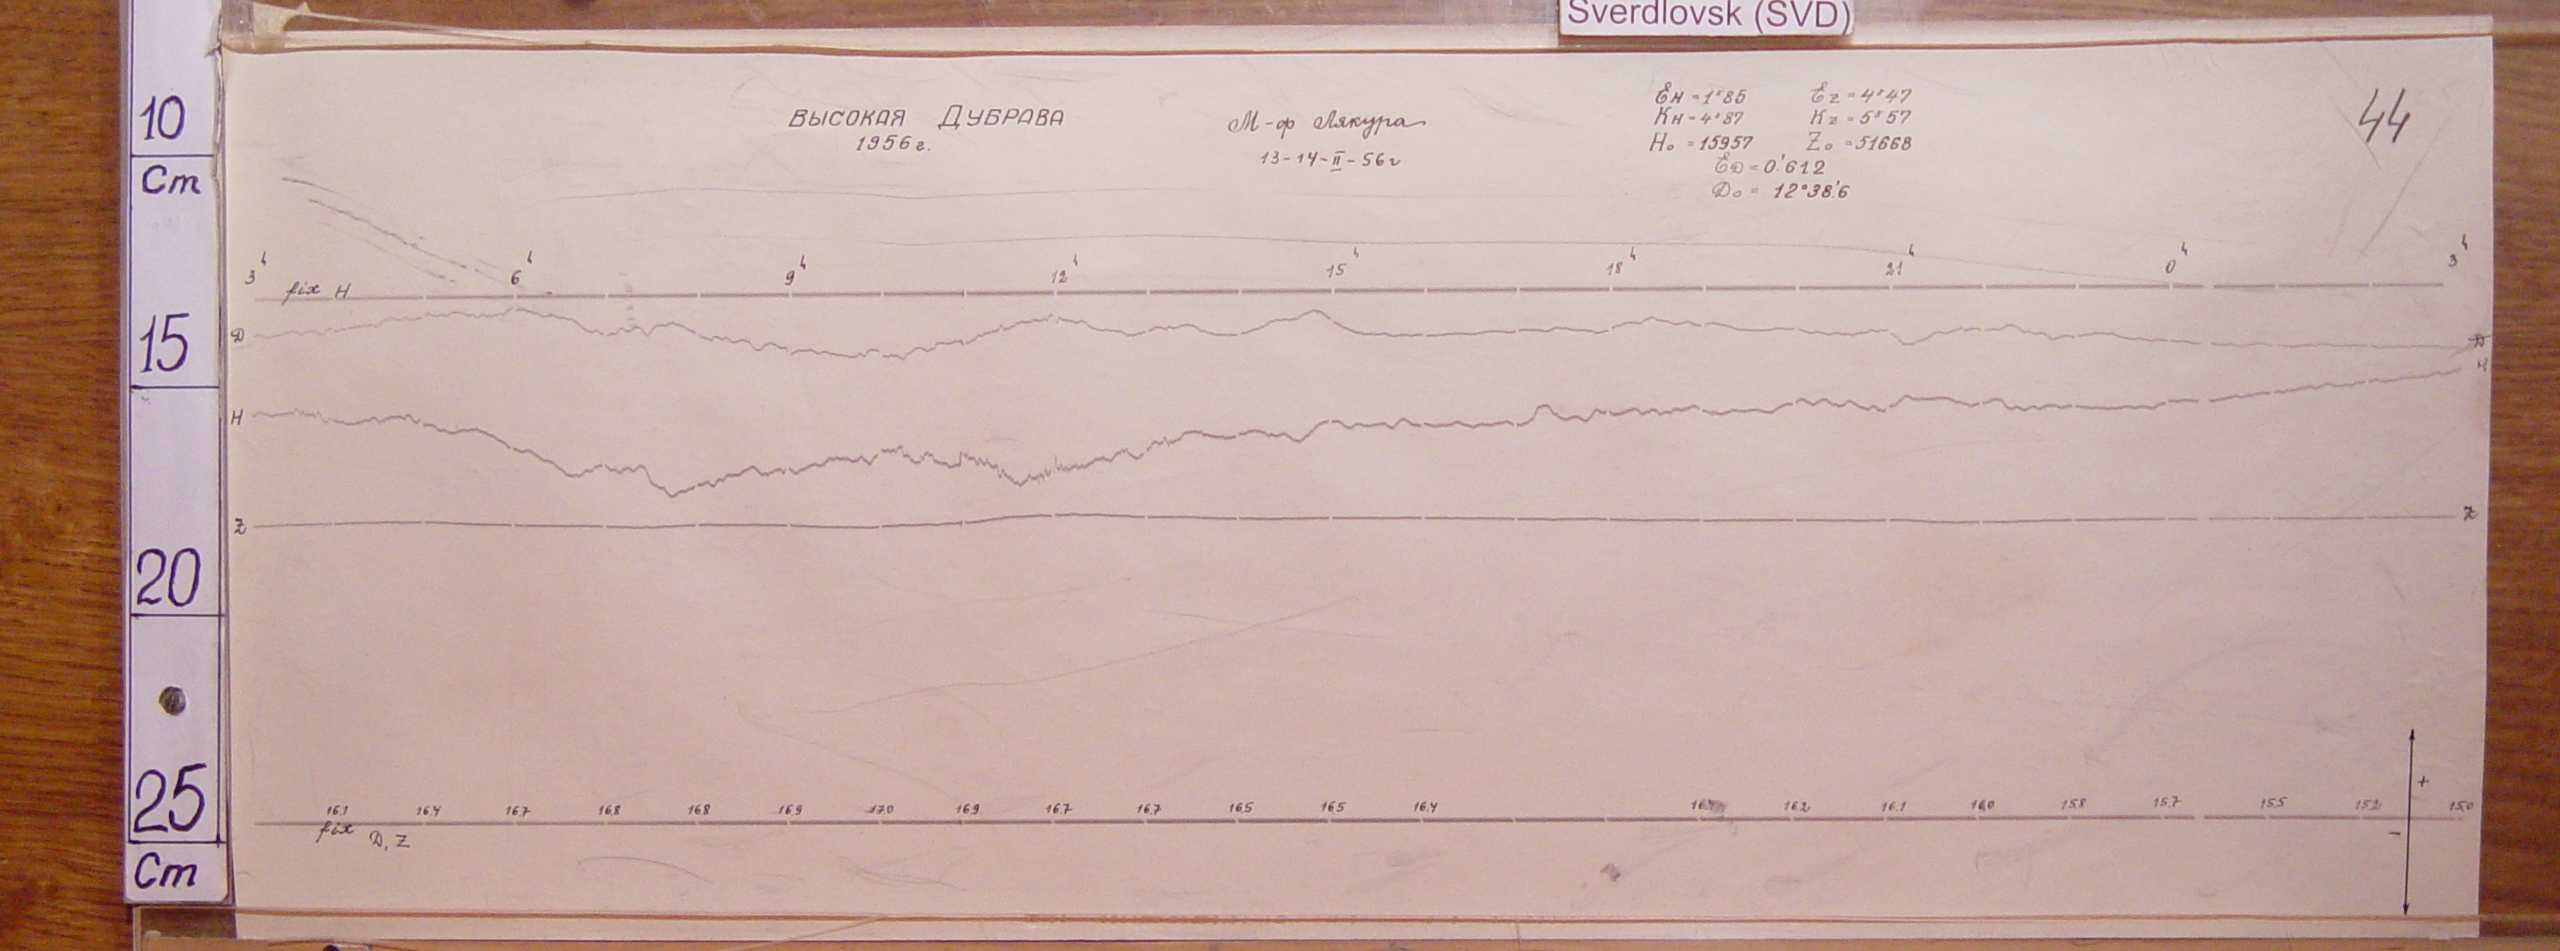 Sverdlovsk (SVD)
10
Cm
15
20
25
Cm
ВЫСОКАЯ ДУБРАВА
1956 г.
М-ф Лякура
13-14-II-56г
Ɛн = 1ˠ85 Ɛz = 4ˠ47
Кн = 4ˠ87 Кz = 5ˠ57
H₀ = 15957 Z₀ = 51668
ƐD = 0'612
D₀ = 12°38'6
44
3ʰ 6ʰ 9ʰ 12ʰ 15ʰ 18ʰ 21ʰ 0ʰ 3ʰ
fix H
D D
H H
Z Z
16.1 16.4 16.7 16.8 16.8 16.9 17.0 16.9 16.7 16.7 16.5 16.5 16.4 16.2 16.1 16.0 15.8 15.7 15.5 15.2 15.0
fix D, Z
+
-